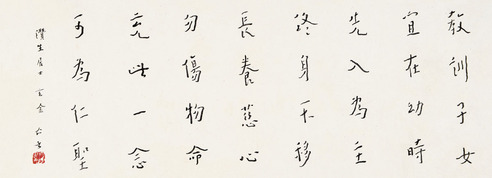 教訓子女
宜在幼時
先入為主
終身不移
長養慈心
勿傷物命
充此一念
可為仁聖